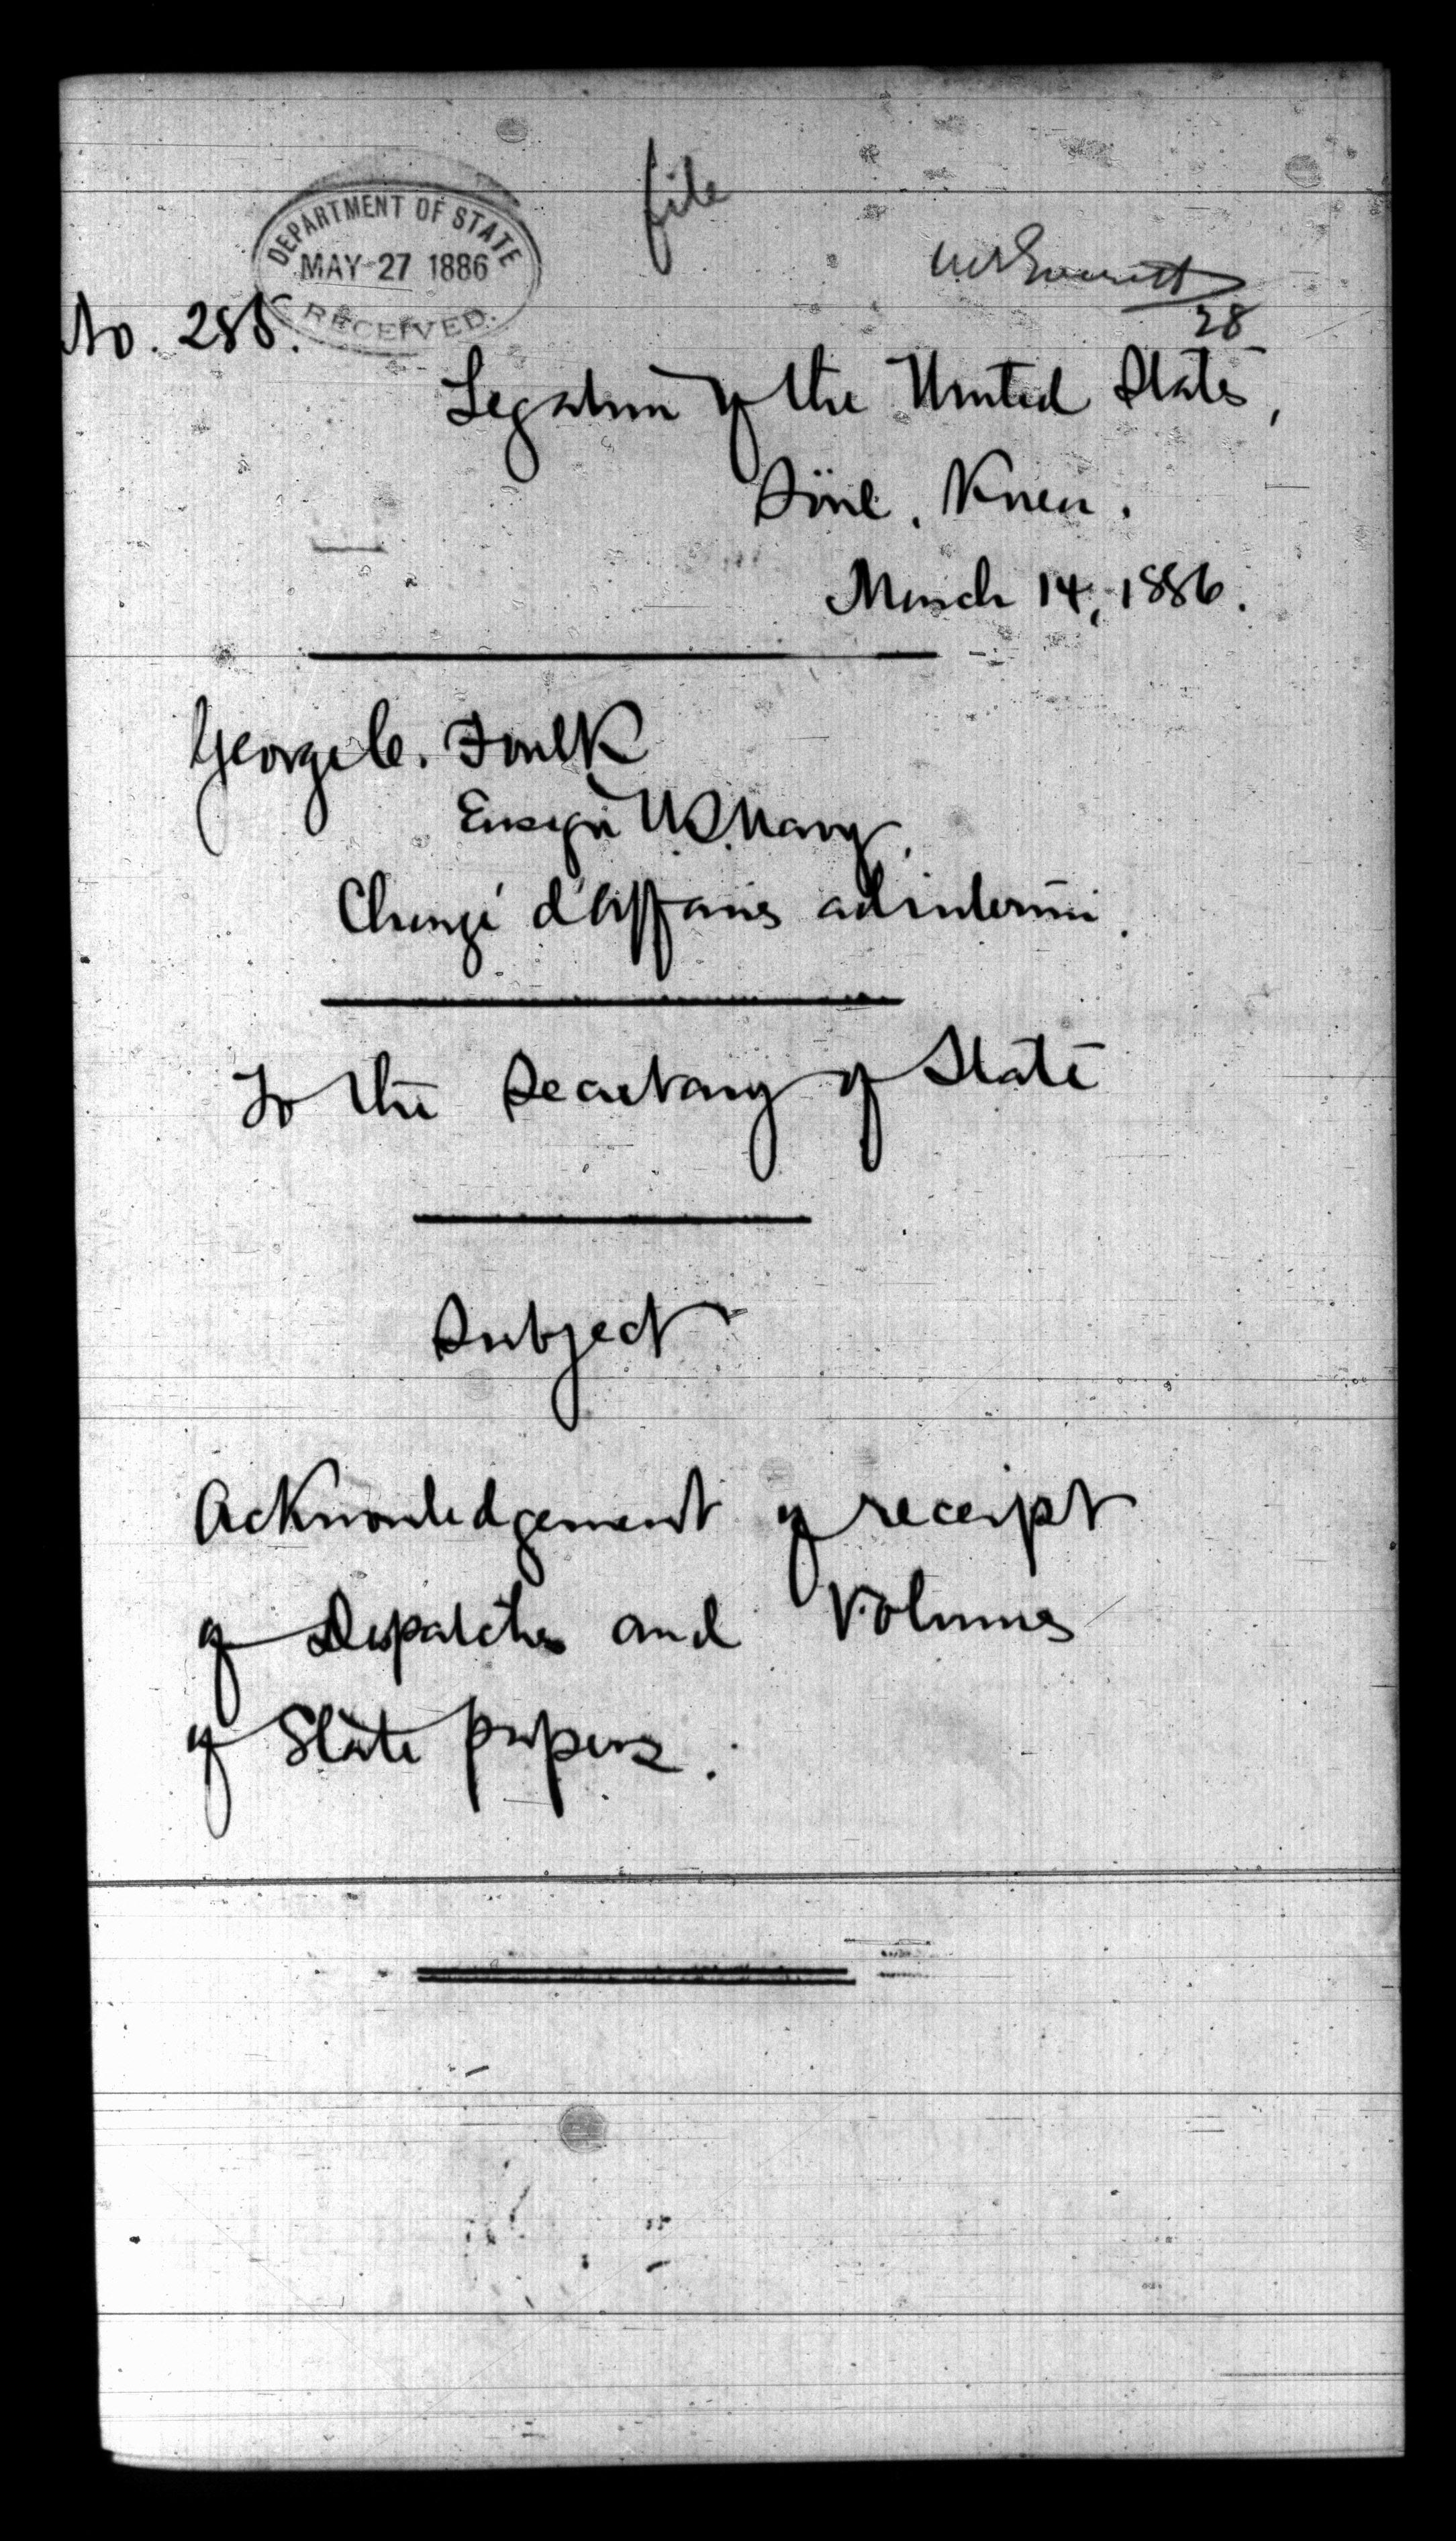 file
DEPARTMENT OF STATE
MAY 27 1886
RECEIVED.
28
No. 285.
Legation of the United States,
Söul, Korea.
March 14, 1886.
George C. Foulk
Ensign U.S. Navy,
Chargé d'Affaires ad interim.
To the Secretary of State
Subject
Acknowledgement of receipt
of Dispatches and Volumes
of State papers.